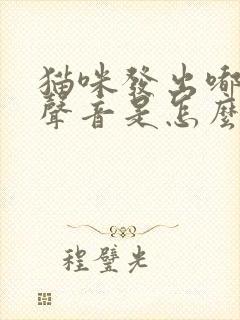 貓咪發出嘟
聲音是怎麼
程璧光